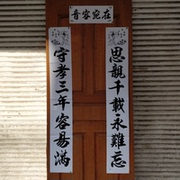 音容宛在
思親千載永難忘
守孝三年容易滿